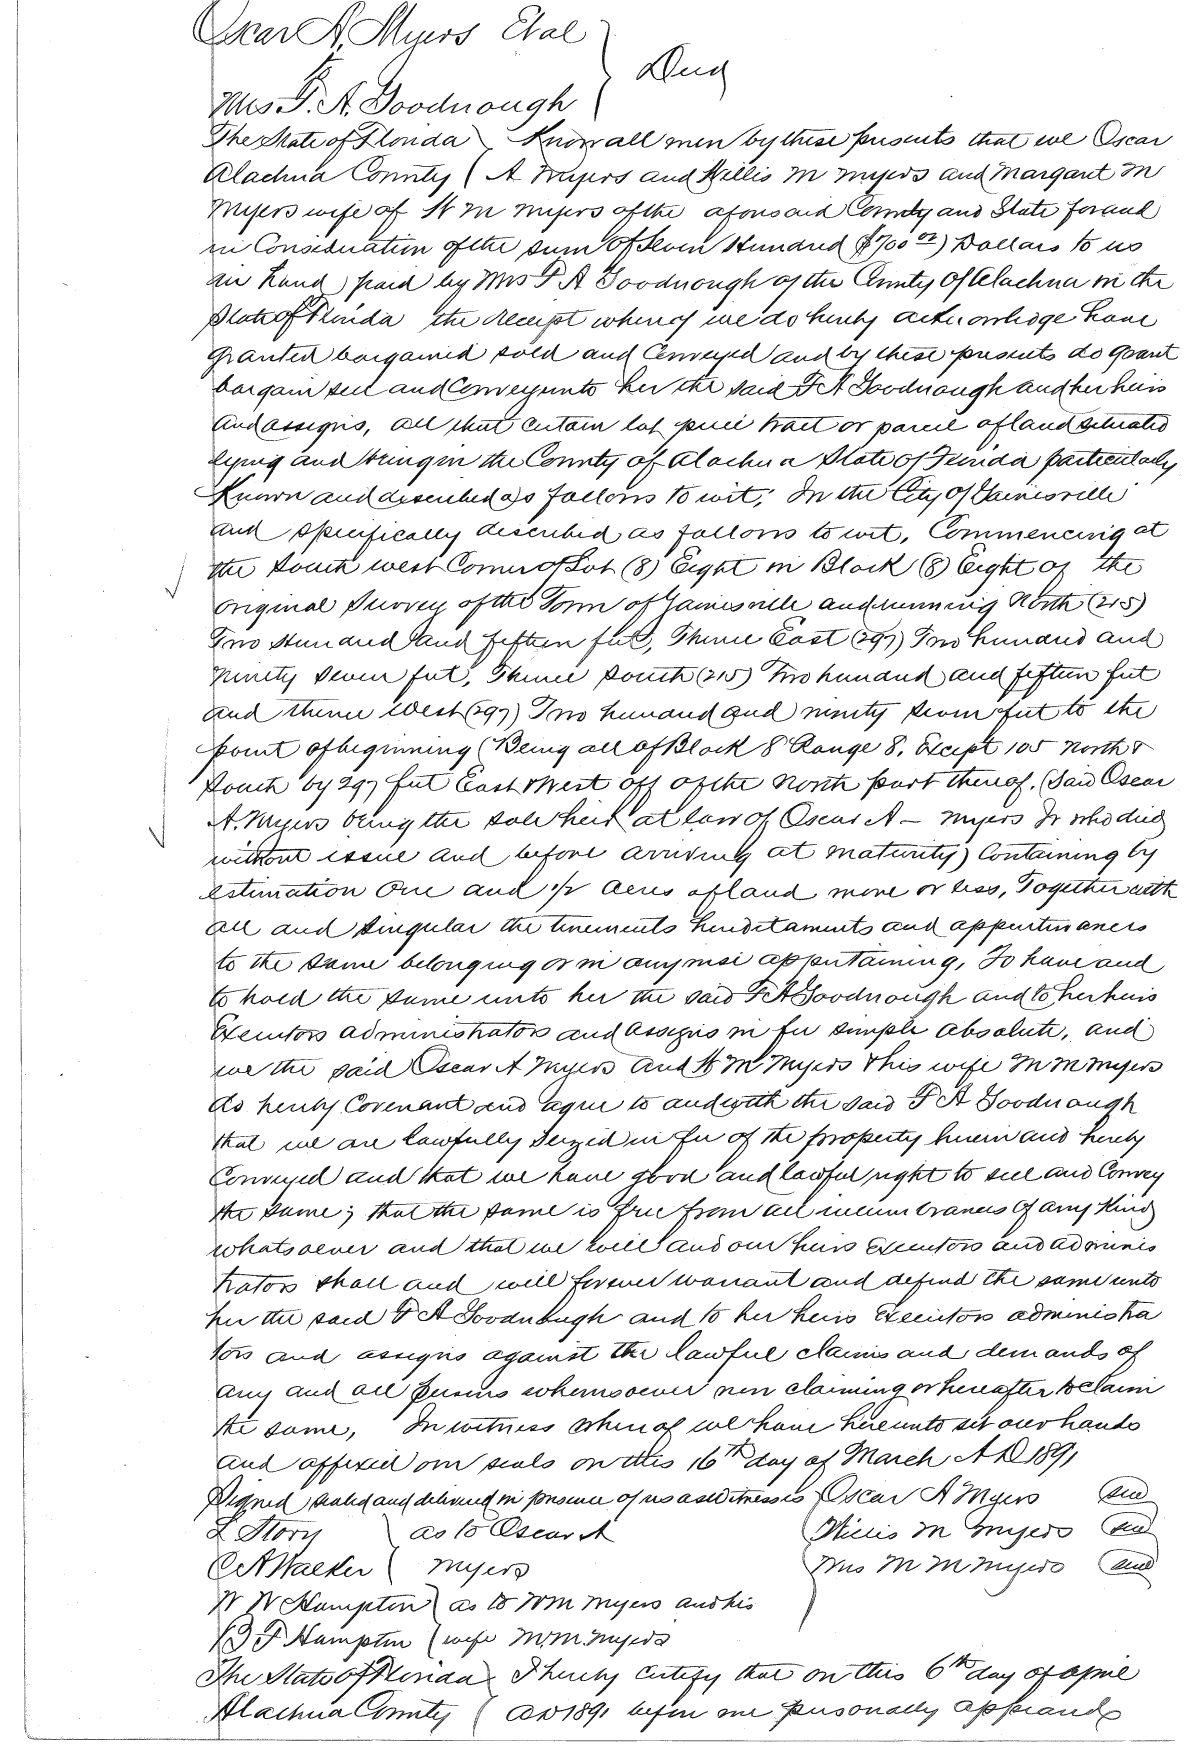 Oscar A. Myers Etal
to } Deed
Mrs F. A. Goodnough
The State of Florida } Know all men by these presents that we Oscar
Alachua County ( A Myers and Willis M Myers and Margaret M
Myers wife of W M Myers of the aforesaid County and State for and
in Consideration of the sum of Seven Hundred ($700 00) Dollars to us
in hand paid by Mrs F A Goodnough of the County of Alachua in the
State of Florida the receipt whereof we do hereby acknowledge have
granted bargained sold and Conveyed and by these presents do grant
bargain sell and Convey unto her the said F A Goodnough and her heirs
and assigns, all that certain lot piece tract or parcel of land situated
lying and being in the County of Alachua State of Florida particularly
Known and described as follows to wit; In the City of Gainesville
and specifically described as follows to wit, Commencing at
the South west Corner of Lot (8) Eight in Block (8) Eight of the
original Survey of the Town of Gainesville and running North (215)
Two Hundred and fifteen feet, Thence East (297) Two hundred and
Ninety seven feet, Thence South (215) Two hundred and fifteen feet
and thence West (297) Two hundred and ninety seven feet to the
point of beginning (Being all of Block 8 Range 8. Except 105 North &
South by 297 feet East & West off of the North part thereof. (Said Oscar
A. Myers being the sole heir at law of Oscar A - Myers Jr who died
without issue and before arriving at maturity) Containing by
estimation One and 1/2 acres of land more or less, Together with
all and singular the tenements hereditaments and appurtenances
to the same belonging or in anywise appertaining, To have and
to hold the same unto her the said F A Goodnough and to her heirs
Executors administrators and assigns in fee simple absolute, and
we the said Oscar A Myers and W M Myers & his wife M M Myers
do hereby Covenant and agree to and with the said F A Goodnough
that we are lawfully seized in fee of the property herein and hereby
Conveyed and that we have good and lawful right to sell and Convey
the same; that the same is free from all incumbrances of any Kind
whatsoever and that we will and our heirs Executors and adminis
trators shall and will forever warrant and defend the same unto
her the said F A Goodnough and to her heirs Executors administra
tors and assigns against the lawful claims and demands of
any and all persons whomsoever now claiming or hereafter to claim
the same, In witness whereof we have hereunto set our hands
and affixed our seals on this 16th day of March A D 1891
Signed sealed and delivered in presence of us as witnesses } Oscar A Myers (seal)
L Story } as to Oscar A Willis M Myers (seal)
C A Walker ( Myers Mrs M M Myers (seal)
W W Hampton } as to W M Myers and his
B F Hampton ( wife M. M. Myers
The State of Florida } I hereby certify that on this 6th day of april
Alachua County ( AD 1891 before me personally appeared